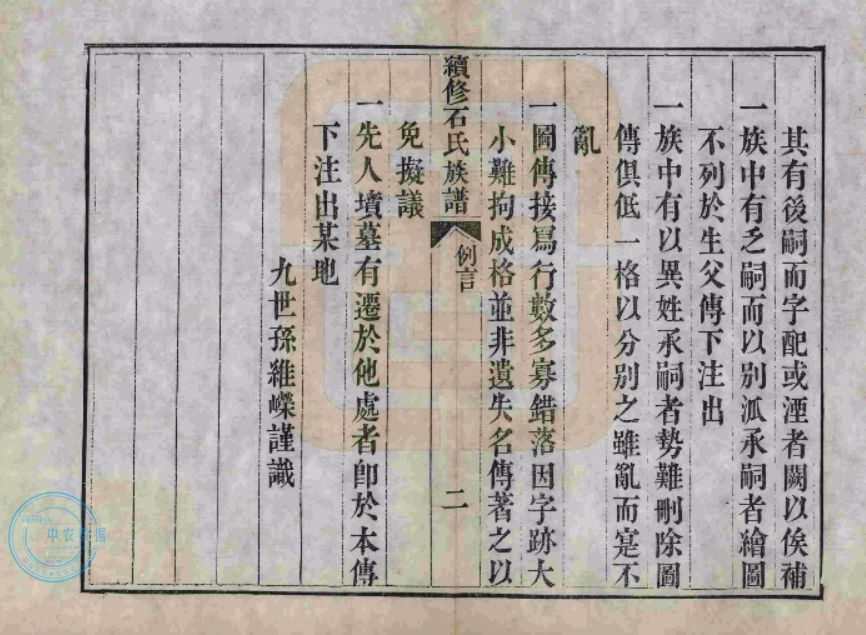 其有後嗣而字配或湮者闕以俟補
一族中有乏嗣而以別派承嗣者繪圖
不列於生父傳下注出
一族中有以異姓承嗣者勢難刪除圖
傳俱低一格以分別之雖亂而寔不
亂
一圖傳接寫行數多寡錯落因字跡大
小難拘成格並非遺失名傳著之以
續修石氏族譜
例言
二
免擬議
一先人墳墓有遷於他處者卽於本傳
下注出某地
九世孫維嶸謹識
中农
据